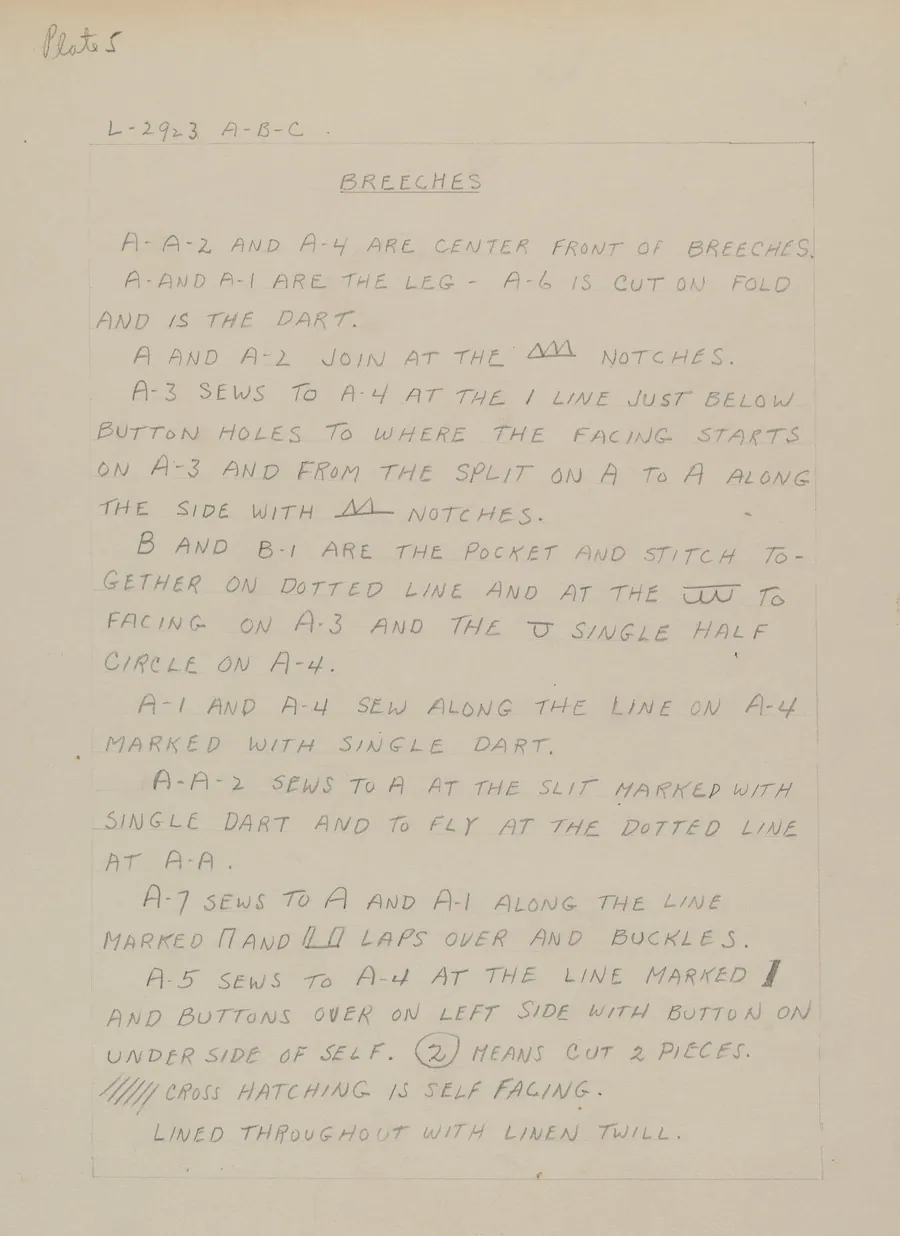 Plate 5
L-2923 A-B-C .
BREECHES
A- A-2 AND A-4 ARE CENTER FRONT OF BREECHES.
A-AND A-1 ARE THE LEG - A-6 IS CUT ON FOLD
AND IS THE DART.
A AND A-2 JOIN AT THE NOTCHES.
A-3 SEWS TO A-4 AT THE 1 LINE JUST BELOW
BUTTON HOLES TO WHERE THE FACING STARTS
ON A-3 AND FROM THE SPLIT ON A TO A ALONG
THE SIDE WITH NOTCHES.
B AND B-1 ARE THE POCKET AND STITCH TO-
GETHER ON DOTTED LINE AND AT THE TO
FACING ON A-3 AND THE SINGLE HALF
CIRCLE ON A-4.
A-1 AND A-4 SEW ALONG THE LINE ON A-4
MARKED WITH SINGLE DART.
A-A-2 SEWS TO A AT THE SLIT MARKED WITH
SINGLE DART AND TO FLY AT THE DOTTED LINE
AT A-A.
A-7 SEWS TO A AND A-1 ALONG THE LINE
MARKED AND LAPS OVER AND BUCKLES.
A-5 SEWS TO A-4 AT THE LINE MARKED
AND BUTTONS OVER ON LEFT SIDE WITH BUTTON ON
UNDER SIDE OF SELF. (2) MEANS CUT 2 PIECES.
////// CROSS HATCHING IS SELF FACING.
LINED THROUGHOUT WITH LINEN TWILL.